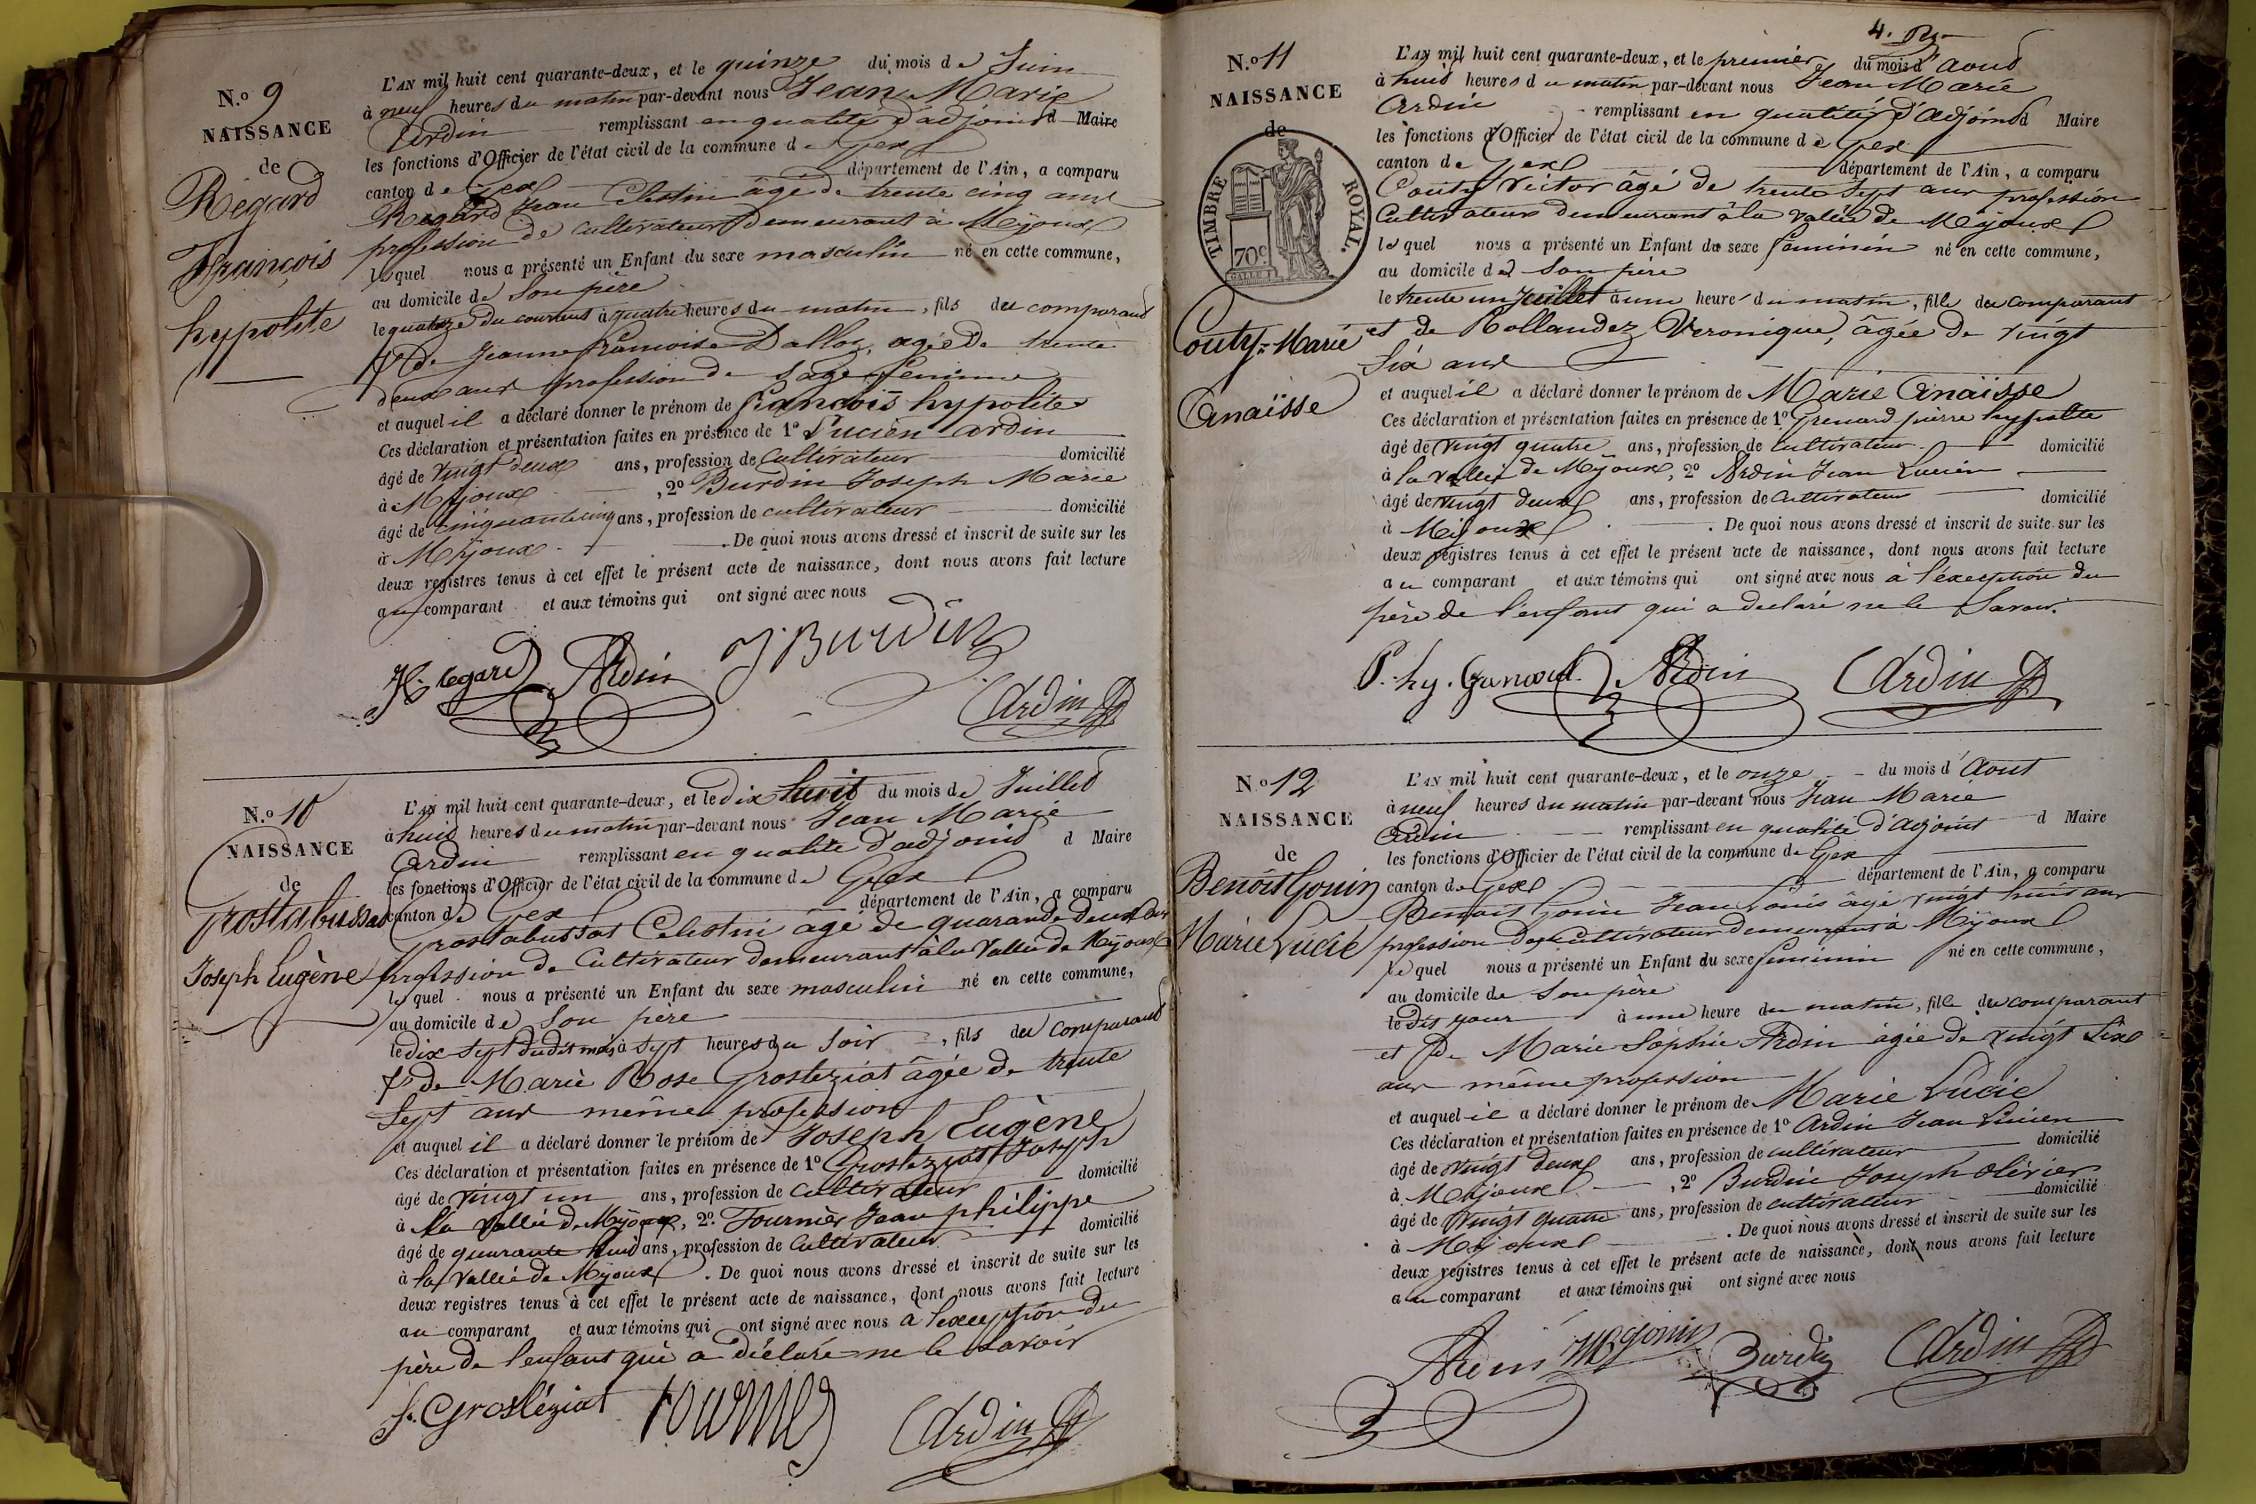 N.° 9
NAISSANCE
de
Regard
François
hypolite
L'AN mil huit cent quarante-deux, et le quinze du mois de Juin
à neuf heures du matin par-devant nous Jean Marie
Ardin remplissant en qualité d'adjoint d Maire
les fonctions d'Officier de l'état civil de la commune de Gex
canton de Gex département de l'Ain, a comparu
Regard Jean Celestin âgé de trente cinq ans
profession de cultivateur demeurant à Mijoux
lequel nous a présenté un Enfant du sexe masculin né en cette commune,
au domicile de Son père
le quatorze du courant à quatre heures du matin, fils du comparant
& de Jeanne françoise Dalloz, agée de trente
deux ans profession de Sage femme
et auquel il a déclaré donner le prénom de françois hypolite
Ces déclaration et présentation faites en présence de 1° Lucien ardin
âgé de vingt deux ans, profession de cultivateur domicilié
à Mijoux, 2° Burdin Joseph Marie
âgé de cinquante cinq ans, profession de cultivateur domicilié
à Mijoux. De quoi nous avons dressé et inscrit de suite sur les
deux registres tenus à cet effet le présent acte de naissance, dont nous avons fait lecture
au comparant et aux témoins qui ont signé avec nous
Regard Ardin J Burdin
Ardin
N.° 10
NAISSANCE
de
Grostabussat
Joseph Eugène
L'AN mil huit cent quarante-deux, et le dix huit du mois de Juillet
à huit heures du matin par-devant nous Jean Marie
Ardin remplissant en qualité d'adjoint d Maire
les fonctions d'Officier de l'état civil de la commune de Gex
canton de Gex département de l'Ain, a comparu
Grostabussat Celestin âgé de quarante deux ans
profession de Cultivateur demeurant à la Vallée de Mijoux
lequel nous a présenté un Enfant du sexe masculin né en cette commune,
au domicile de Son père
le dix sept dudit mois à sept heures du soir, fils du comparant
& de Marie Rose Grosteziat âgée de trente
Sept ans même profession
et auquel il a déclaré donner le prénom de Joseph Eugène
Ces déclaration et présentation faites en présence de 1° Grosteziat Joseph
âgé de vingt un ans, profession de Cultivateur domicilié
à la Vallée de Mijoux, 2° Fournier Jean philippe
âgé de quarante huit ans, profession de Cultivateur domicilié
à la Vallée de Mijoux. De quoi nous avons dressé et inscrit de suite sur les
deux registres tenus à cet effet le présent acte de naissance, dont nous avons fait lecture
au comparant et aux témoins qui ont signé avec nous a l'exception du
père de l'enfant qui a déclaré ne le savoir
J. Grosléziat fournier Ardin
4.
N.° 11
NAISSANCE
de
TIMBRE ROYAL.
70c
Couty Marie
Anaïsse
L'AN mil huit cent quarante-deux, et le premier du mois d'aout
à huit heures du matin par-devant nous Jean Marie
Ardin remplissant en qualité d'Adjoint d Maire
les fonctions d'Officier de l'état civil de la commune de Gex
canton de Gex département de l'Ain, a comparu
Couty Victor âgé de trente Sept ans profession
Cultivateur demeurant à la Vallée de Mijoux
lequel nous a présenté un Enfant du sexe féminin né en cette commune,
au domicile de Son père
le trente un Juillet à une heure du matin, fille du comparant
et de Rollandez Veronique, âgée de vingt
Six ans
et auquel il a déclaré donner le prénom de Marie Anaïsse
Ces déclaration et présentation faites en présence de 1° Grenard pierre hypolite
âgé de vingt quatre ans, profession de Cultivateur domicilié
à la Vallée de Mijoux, 2° Ardin Jean Lucien
âgé de vingt deux ans, profession de Cultivateur domicilié
à Mijoux. De quoi nous avons dressé et inscrit de suite sur les
deux registres tenus à cet effet le présent acte de naissance, dont nous avons fait lecture
au comparant et aux témoins qui ont signé avec nous à l'exception du
père de l'enfant qui a declaré ne le Savoir.
P. hy. Ardin Ardin
N.° 12
NAISSANCE
de
Benoit Gonin
Marie Lucie
L'AN mil huit cent quarante-deux, et le onze du mois d'Aout
à neuf heures du matin par-devant nous Jean Marie
Ardin remplissant en qualité d'adjoint d Maire
les fonctions d'Officier de l'état civil de la commune de Gex
canton de Gex département de l'Ain, a comparu
Benoit Gonin Jean Louis âgé vingt huit ans
profession de Cultivateur demeurant à Mijoux
lequel nous a présenté un Enfant du sexe feminin né en cette commune,
au domicile de Son père
le dit jour à une heure du matin, fille du comparant
et de Marie Sophie Ardin âgée de vingt Six
ans même profession
et auquel il a déclaré donner le prénom de Marie Lucie
Ces déclaration et présentation faites en présence de 1° Ardin Jean Lucien
âgé de vingt deux ans, profession de cultivateur domicilié
à Mijoux, 2° Burdin Joseph Olivier
âgé de vingt quatre ans, profession de cultivateur domicilié
à Mijoux. De quoi nous avons dressé et inscrit de suite sur les
deux registres tenus à cet effet le présent acte de naissance, dont nous avons fait lecture
au comparant et aux témoins qui ont signé avec nous
Ardin Gonin Burdin Ardin